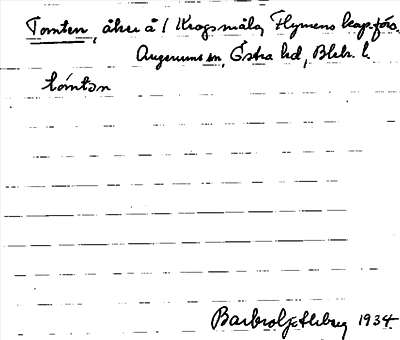 Tomten, åker å 1 Krogsmåla, Flymens kap.förs.
Augerums sn, Östra hd, Blek. l.
tómtən
Barbro Ahlberg 1934.